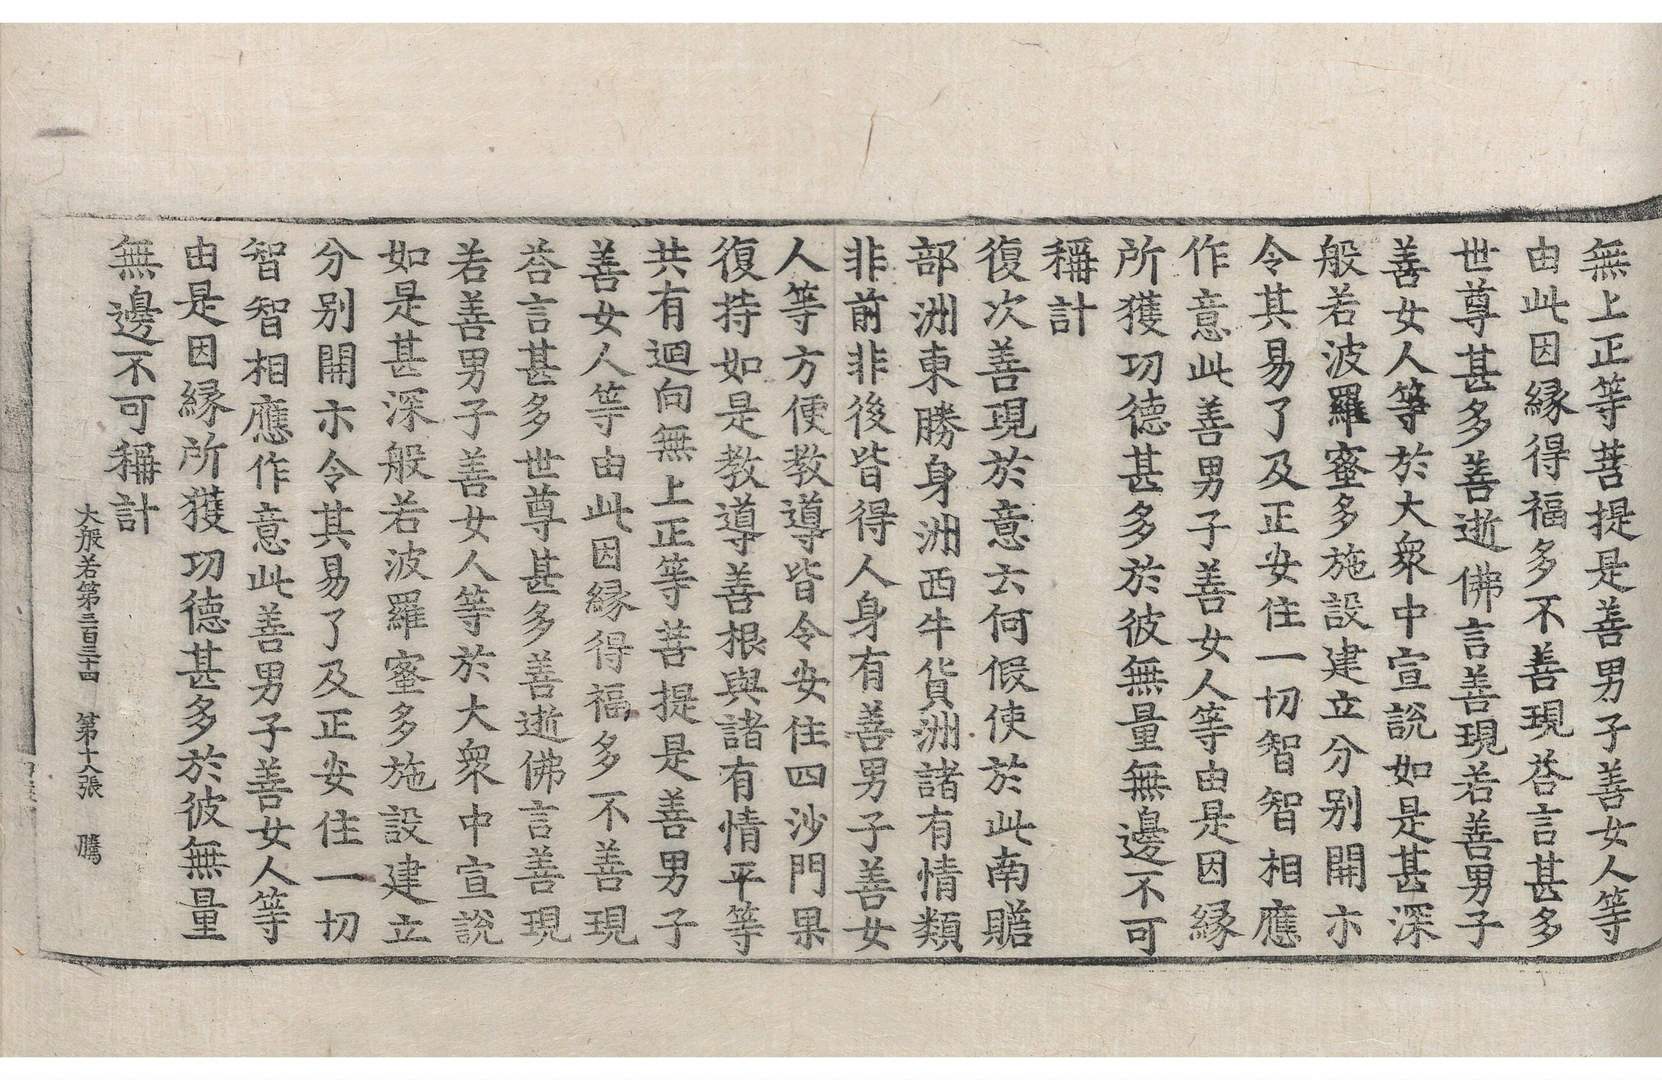 無上正等菩提是善男子善女人等
由此因緣得福多不善現荅言甚多
世尊甚多善逝佛言善現若善男子
善女人等於大衆中宣說如是甚深
般若波羅蜜多施設建立分別開示
令其易了及正安住一切智智相應
作意此善男子善女人等由是因緣
所獲功德甚多於彼無量無邊不可
稱計
復次善現於意云何假使於此南贍
部洲東勝身洲西牛貨洲諸有情類
非前非後皆得人身有善男子善女
人等方便教導皆令安住四沙門果
復持如是教導善根與諸有情平等
共有迴向無上正等菩提是善男子
善女人等由此因緣得福多不善現
荅言甚多世尊甚多善逝佛言善現
若善男子善女人等於大衆中宣說
如是甚深般若波羅蜜多施設建立
分別開示令其易了及正安住一切
智智相應作意此善男子善女人等
由是因緣所獲功德甚多於彼無量
無邊不可稱計
大般若第三百三十四 第十八張 騰